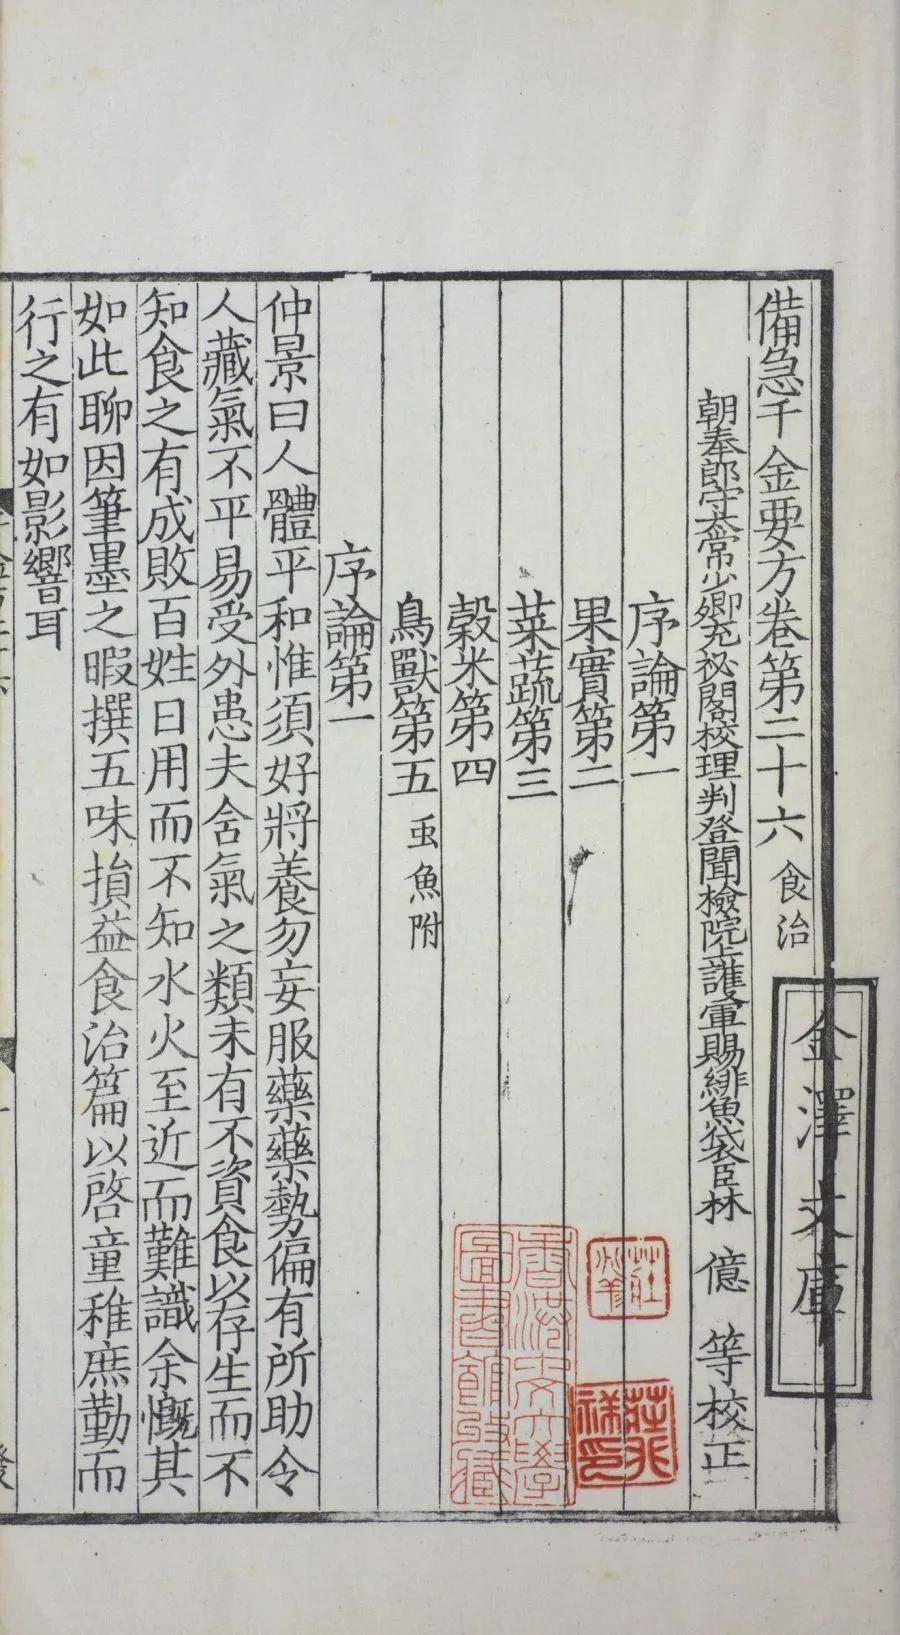 備急千金要方卷第二十六 食治
朝奉郎守太常少卿充祕閣校理判登聞檢院上護軍賜緋魚袋臣林 億 等校正
序論第一
果實第二
菜蔬第三
穀米第四
鳥獸第五 䖝魚附
序論第一
仲景曰人體平和惟須好將養勿妄服藥藥勢偏有所助令
人藏氣不平易受外患夫含氣之類未有不資食以存生而不
知食之有成敗百姓日用而不知水火至近而難識余慨其
如此聊因筆墨之暇撰五味損益食治篇以啓童稚庶勤而
行之有如影響耳
金澤文庫
香港中文大學
圖書館收藏